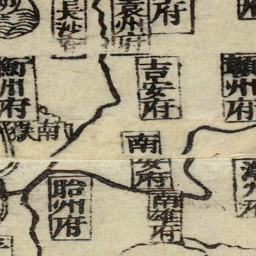 長沙
袁州府
府
衡州府
吉安府
贛州府
南嶽
南安府
韶州府
南雄府
潮州府